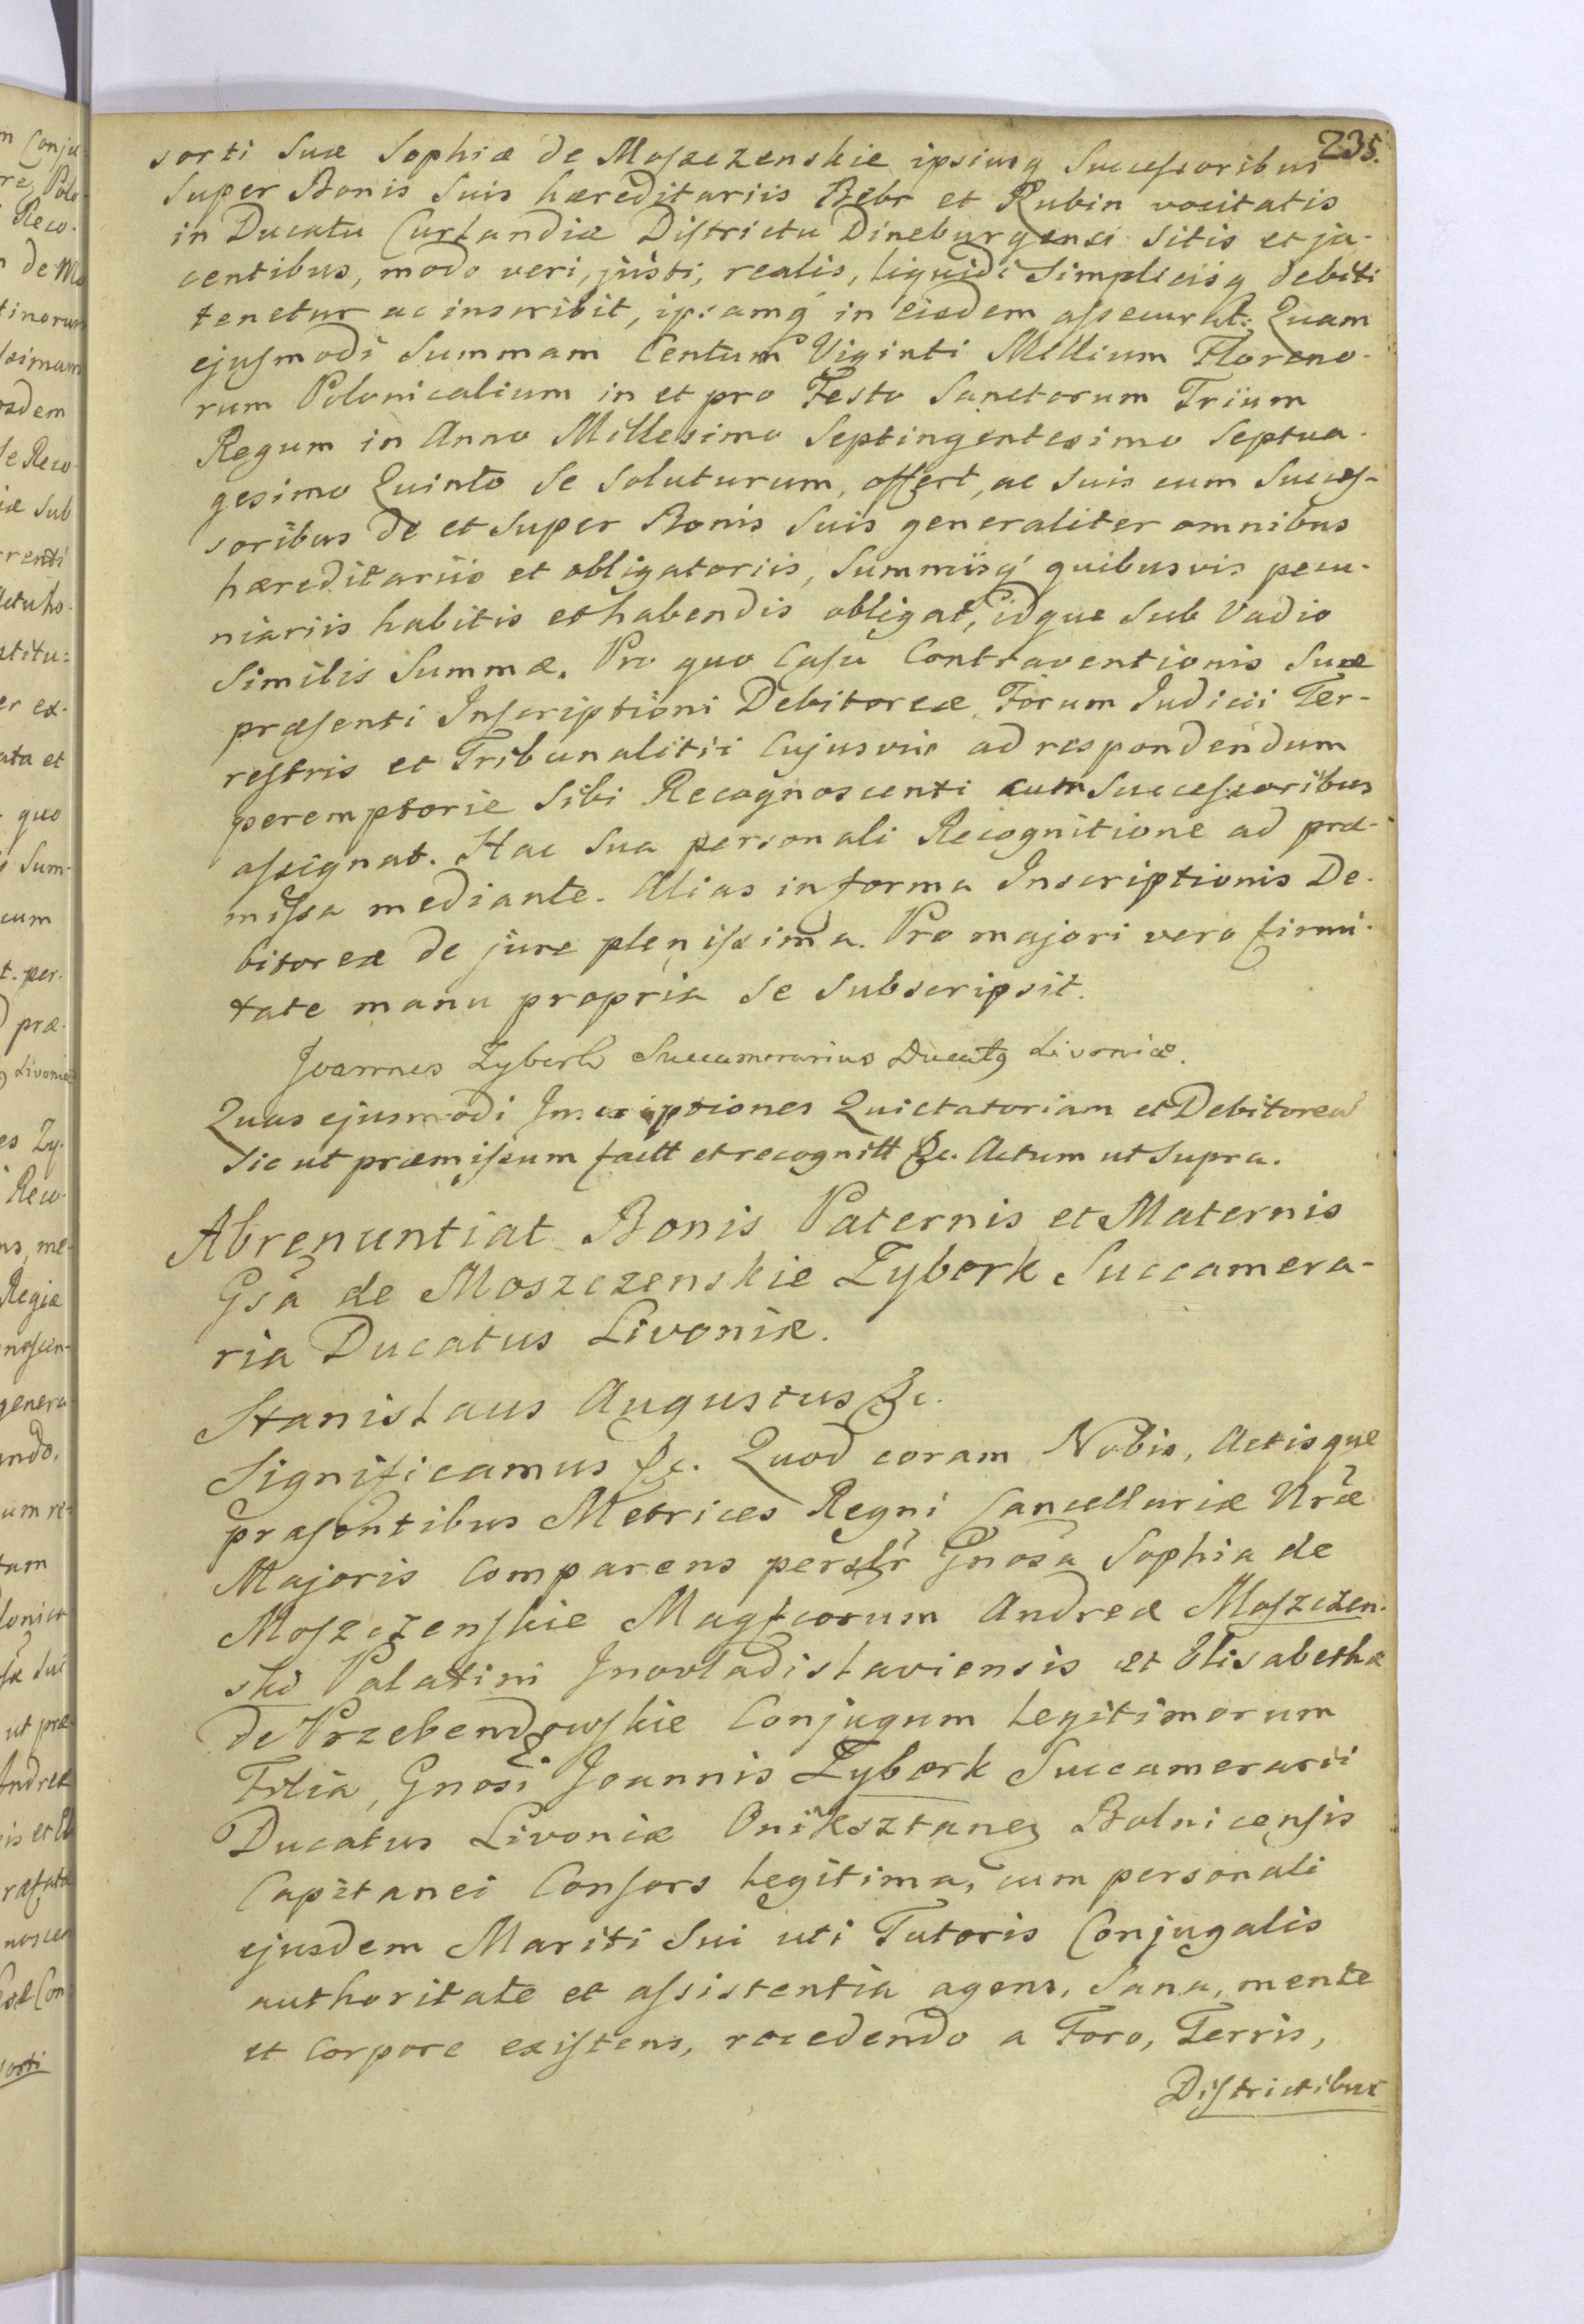 235.
sorti Suæ Sophiæ de Moszczenskie ipsiusq Successoribus
Super Bonis Suis hæreditariis Bebr et Rubin vocitatis
in Ducatu Curlandiæ Districtu Dineburgensi Sitis et ja-
centibus, modo veri, justi, realis, liquidi Simplicisq debiti
tenetur ac inscribit, ipsamq in eisdem assecurat: Quam
ejusmodi Summam Centum Viginti Millium Floreno-
rum Polonicalium in et pro Festo Sanctorum Trium
Regum in Anno Millesimo Septingentesimo Septua-
gesimo Quinto Se Soluturum, offert, ac Suis cum Succes-
soribus de et Super Bonis Suis generaliter omnibus
hæreditariis et obligatoriis, Summisq quibusvis pecu-
niariis habitis et habendis obligat, idque Sub Vadio
Similis Summæ. Pro quo Casu Contraventionis Suæ
præsenti Inscriptioni Debitoreæ Forum Judicii Ter-
restris et Tribunalitii Cujusvis ad respondendum
peremptorie Sibi Recognoscenti cum Successoribus
assignat. Hac Sua personali Recognitione ad præ-
missa mediante. Alias in forma Inscriptionis De-
bitoreæ de jure plenissima. Pro majori vero firmi-
tate manu propria Se Subscripsit.
Joannes Zyberk Succamerarius Ducatq Livoniæ.
Quas ejusmodi Inscriptiones Quietatoriam et Debitoreã
Sic ut præmissum factt et recognitt &c. Actum ut Supra.
Abrenuntiat Bonis Paternis et Maternis
Gsã de Moszczenskie Zyberk Succamera-
ria Ducatus Livoniæ.
Stanislaus Augustus &c.
Significamus &c. Quod coram Nobis, Actisque
præsentibus Metrices Regni Cancellariæ Nr̃æ
Majoris Comparens persl̃r Gnosã Sophia de
Moszczenskie Magfcorum Andreæ Moszczen-
ski Palatini Inovladislaviensis et Elisabethæ
de Przebendowskie Conjugum legitimorum
Filia, Gnosi Joannis Zyberk Succamerarii
Ducatus Livoniæ Oniksztaneq Bolnicensis
Capitanei Consors legitima, cum personali
ejusdem Mariti Sui uti Tutoris Conjugalis
authoritate et assistentia agens, Sana, mente
et Corpore existens, recedendo a Foro, Terris,
Districtibus